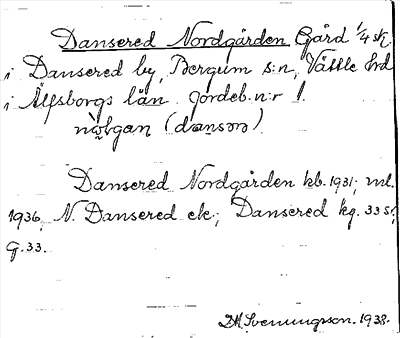 Dansered Nordgården Gård 1/4 sk.
i Dansered by, Bergum s:n, Vättle hrd
i Älfsborgs län. Jordeb.n:r 1.
(dansərə).
Dansered Nordgården kb. 1931; ml.
1936, N. Dansered ek; Dansered kg. 33 S,
G. 33.
D.H. Svenungsson. 1938.